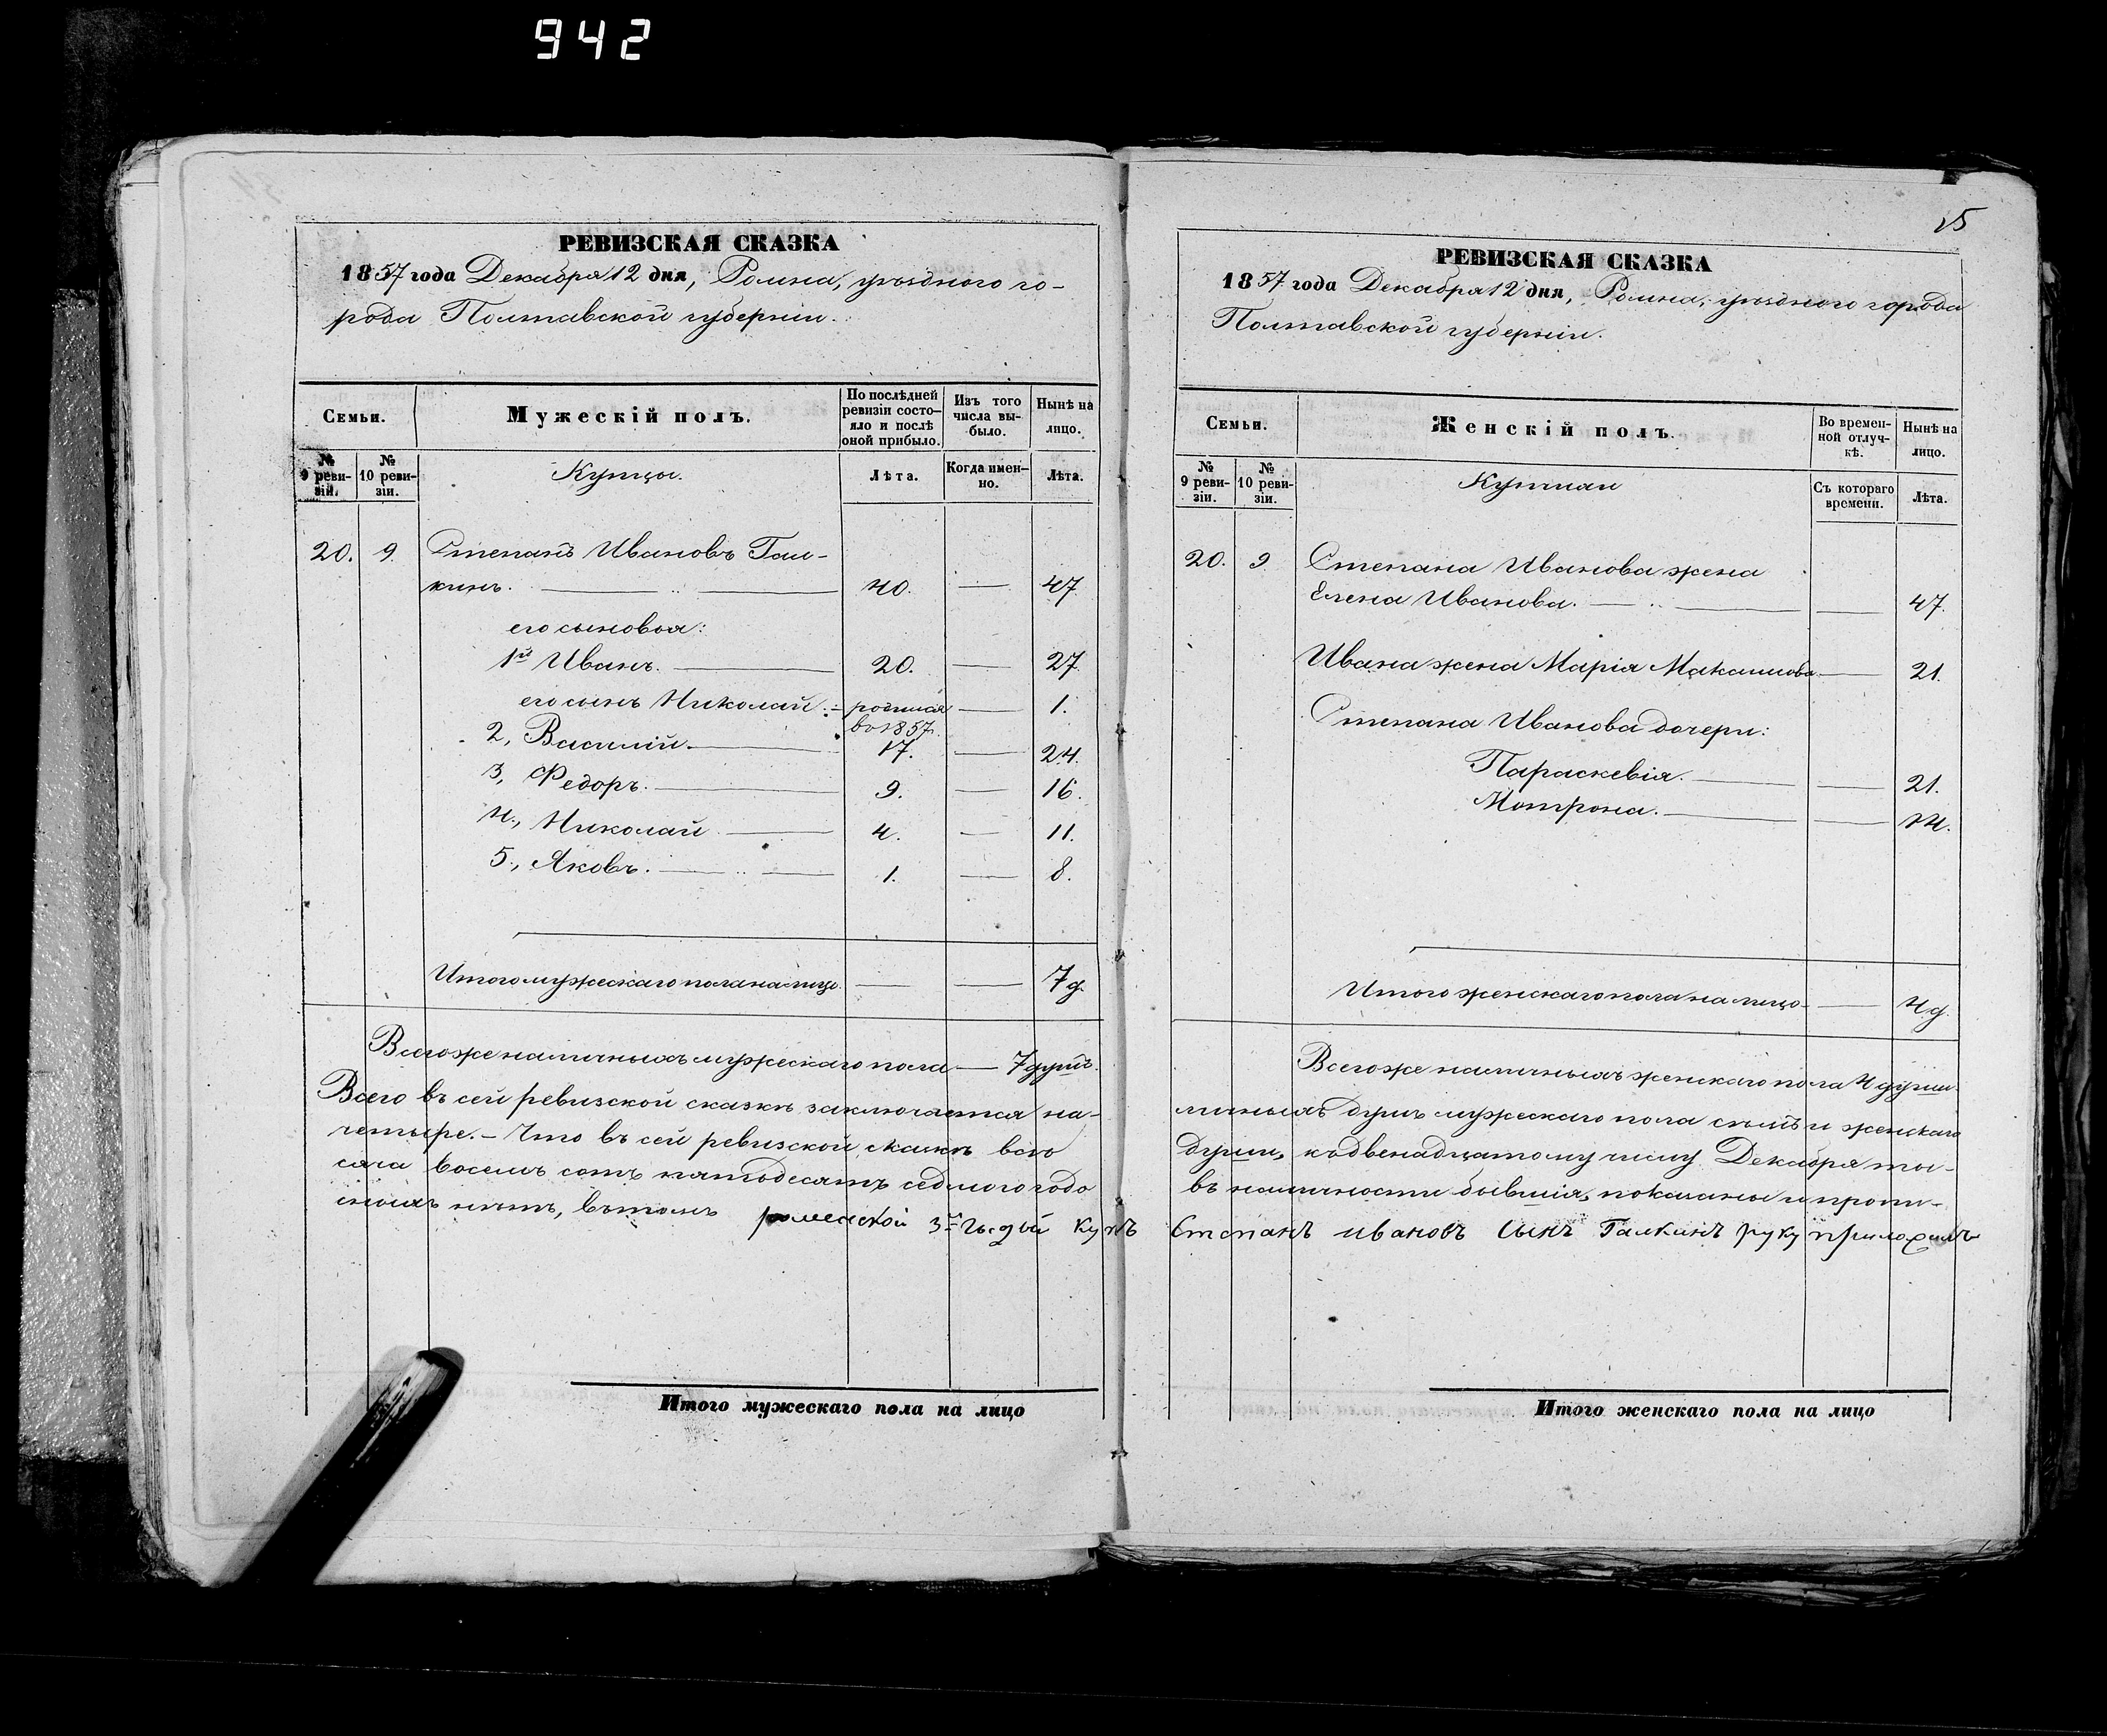 942
РЕВИЗСКАЯ СКАЗКА
1857 года Декабря 12 дня, Ромна, уѣзднаго го-
рода Полтавской губерніи.
Семьи.
Мужескій полъ.
По послѣдней ревизіи состо-яло и послѣ оной прибыло.
Изъ того числа вы-было.
Нынѣ на лицо.
№ 9 реви-зіи.
№ 10 реви-зіи.
Купцы.
Лѣта.
Когда имен-но.
Лѣта.
20. 9. Степанъ Ивановъ Гал-
кинъ. 40. — 47.
его сыновья:
1й Иванъ. 20. — 27.
его сынъ Николай. родился — 1.
во 1857.
2, Василій. 17. — 24.
3, Федоръ. 9. — 16.
4., Николай 4. — 11.
5., Яковъ. 1. — 8.
Итого мужескаго пола на лицо. — — 7 д.
Всего же наличныхъ мужескаго пола — 7 душъ.
Всего въ сей ревизской сказкѣ заключается на-
четыре. — Что въ сей ревизской сказкѣ всѣ
сяча восемь сотъ пятьдесятъ седьмого года
сныхъ нѣтъ, въ томъ роменской 3й гильдый купъ
Итого мужескаго пола на лицо
15
РЕВИЗСКАЯ СКАЗКА
1857 года Декабря 12 дня, Ромна, уѣзднаго города
Полтавской губерніи.
Семьи.
Женскій полъ.
Во времен-ной отлуч-кѣ.
Нынѣ на лицо.
№ 9 реви-зіи.
№ 10 реви-зіи.
Съ котораго времени.
Лѣта.
20. 9 Степана Иванова жена
Елена Иванова. — 47.
Ивана жена Марія Максимова — 21.
Степана Иванова дочери:
Параскевія. — 21.
Мотрона. — 14.
Итого женскаго пола на лицо — 4 д.
Всего же наличныхъ женскаго пола 4 души.
личныхъ душъ мужескаго пола семь и женскаго
души, къ двенадцатому числу Декабря ты-
въ наличности бывшія, показаны и пропи-
Степанъ ивановъ сынъ Галкинъ руку приложилъ
Итого женскаго пола на лицо